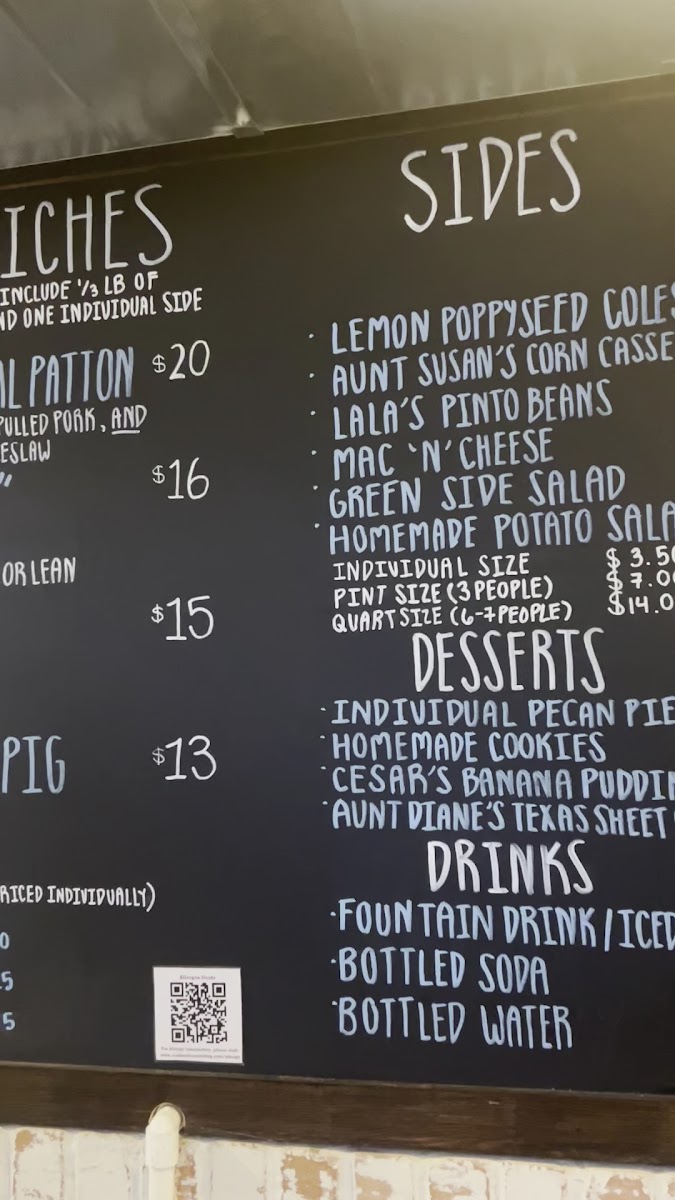 ICHES
INCLUDE 1/3 LB OF
ND ONE INDIVIDUAL SIDE
AL PATTON $20
PULLED PORK, AND
ESLAW
" $16
OR LEAN
$15
PIG $13
RICED INDIVIDUALLY)
0
5
5
Allergen Guide
SIDES
· LEMON POPPYSEED COLES
· AUNT SUSAN'S CORN CASSE
· LALA'S PINTO BEANS
· MAC 'N' CHEESE
· GREEN SIDE SALAD
· HOMEMADE POTATO SALA
INDIVIDUAL SIZE $3.50
PINT SIZE (3 PEOPLE) $7.00
QUART SIZE (6-7 PEOPLE) $14.0
DESSERTS
· INDIVIDUAL PECAN PIE
· HOMEMADE COOKIES
· CESAR'S BANANA PUDDIN
· AUNT DIANE'S TEXAS SHEET
DRINKS
· FOUNTAIN DRINK / ICED
· BOTTLED SODA
· BOTTLED WATER